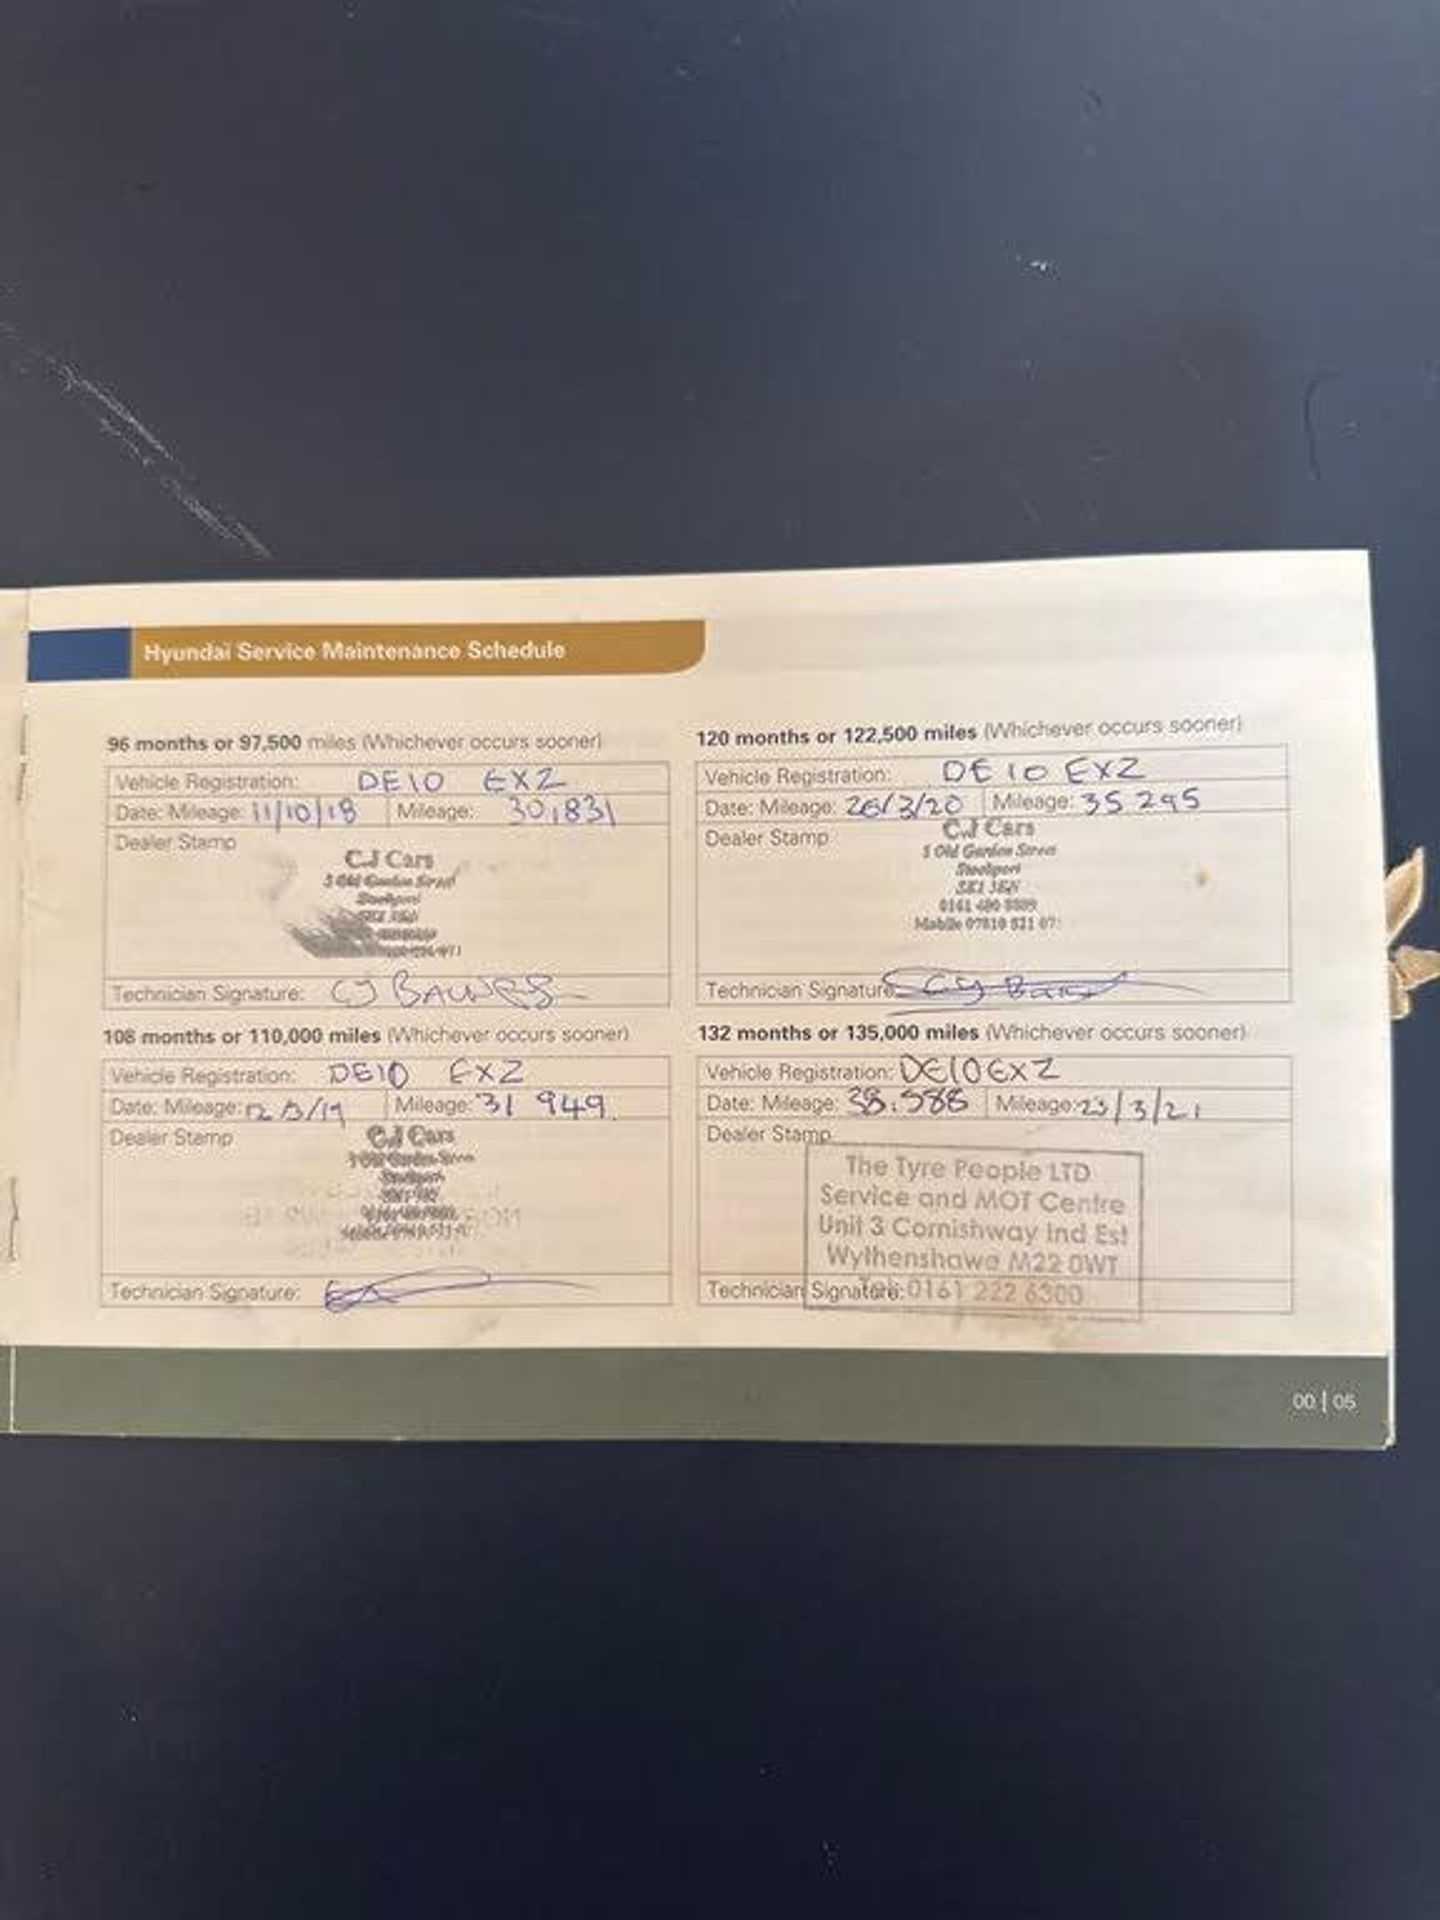 Hyundai Service Maintenance Schedule
96 months or 97,500 miles (Whichever occurs sooner)
Vehicle Registration: DE10 EXZ
Date: Mileage: 11/10/18 Mileage: 30,831
Dealer Stamp
C.J Cars
Technician Signature: CJ
108 months or 110,000 miles (Whichever occurs sooner)
Vehicle Registration: DE10 EXZ
Date: Mileage: Mileage: 31 949
Dealer Stamp
C.J Cars
Technician Signature:
120 months or 122,500 miles (Whichever occurs sooner)
Vehicle Registration: DE10 EXZ
Date: Mileage: 26/3/20 Mileage: 35 295
Dealer Stamp
C.J Cars
Old Garden Street
Stockport
Mobile
Technician Signature
132 months or 135,000 miles (Whichever occurs sooner)
Vehicle Registration: DE10 EXZ
Date: Mileage: 38.588 Mileage: 23/3/21
Dealer Stamp
The Tyre People LTD
Service and MOT Centre
Unit 3 Cornishway Ind Est
Wythenshawe M22 0WT
Technician Signature: Tel: 0161 222 6300
00 | 05